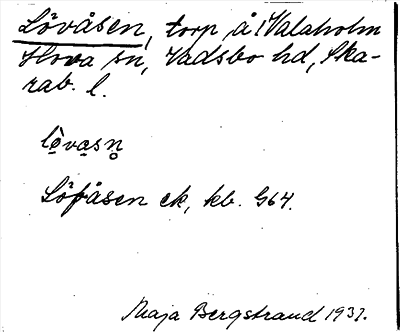 Lövåsen, torp å Valaholm
Hova sn, Vadsbo hd, Ska-
rab. l.
lø̀vasn̥
Löfåsen ek, kb. G64.
Maja Bergstrand 1937.